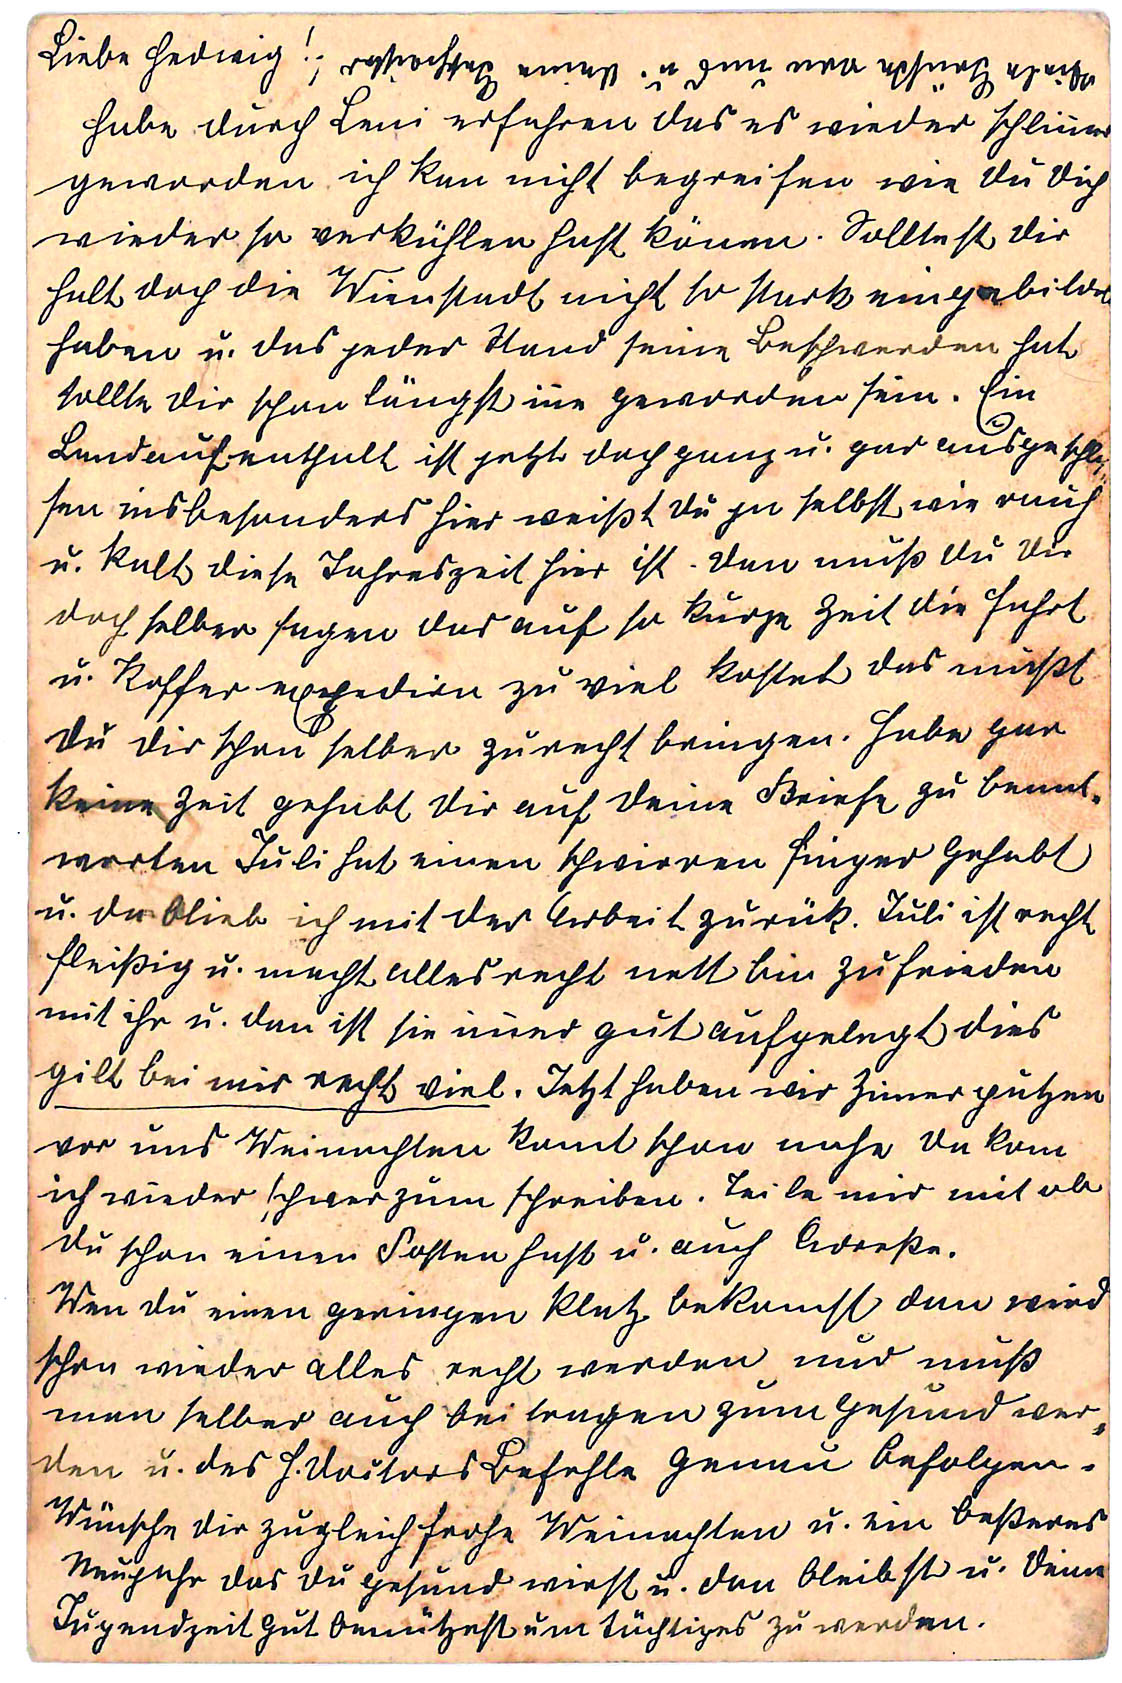 Liebe Hedwig!
habe durch Leni erfahren das es wieder schlimer
geworden ich kan nicht begreifen wie du dich
wieder so verkühlen hast könen. Solltest dir
halt doch die Wienstadt nicht so stark eingebildet
haben u. das jeder Stand seine Beschwerden hat
sollte dir schon längst ine geworden sein. Ein
Landaufenthalt ist jetzt doch ganz u. gar ausgeschlos„
sen insbesonders hier weißt du ja selbst wie rauh
u. kalt diese Jahreszeit hier ist. dan muß du dir
doch selber sagen das auf so kurze Zeit die Fahrt
u. Koffer expedirn zu viel kostet das mußt
du dir schon selber zurecht bringen. Habe gar
keine Zeit gehabt dir auf deine Briefe zu beant„
worten Juli hat einen schwirren finger gehabt
u. da blieb ich mit der Arbeit zurük. Juli ist recht
fleißig u. macht alles recht nett bin zufrieden
mit ihr u. dan ist sie imer gut aufgelegt dies
gilt bei mir recht viel. Jetzt haben wir Zimer putzen
vor uns Weinachten komt schon nahe da kom
ich wieder schwer zum schreiben. Teile mir mit ob
du schon einen Posten hast u. auch Adreße.
Wen du einen geringen Platz bekomst dan wird
schon wieder alles recht werden nur muß
man selber auch beitragen zum gesund wer„
den u. des H. Doctors Befehle genau befolgen.
Wünsche dir zugleich frohe Weinachten u. ein beßeres
Neujahr das du gesund wirst u. dan bleibst u. deine
Jugendzeit gut benützest um tüchtiges zu werden.
viele Grüße von und u. deine Schwester